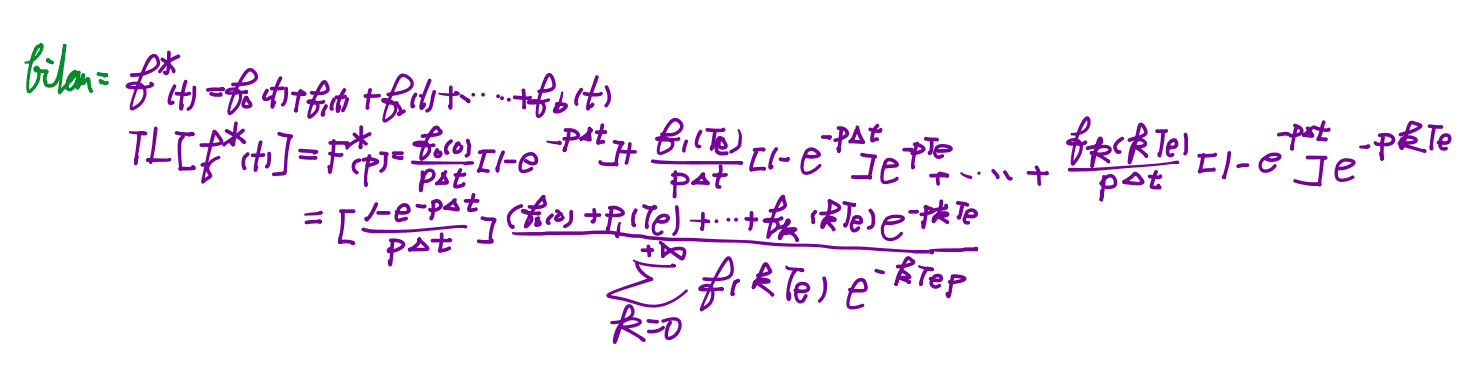 bilan = f*(t) = f₀(t) + f₁(t) + f₂(t) + ..... + f_k(t)
TL[f*(t)] = F*(p) = f₀(0)/pΔt [1-e^{-pΔt}] + f₁(Te)/pΔt [1-e^{-pΔt}] e^{-pTe} + ..... + f_k(kTe)/pΔt [1-e^{-pΔt}] e^{-pkTe}
= [1-e^{-pΔt}/pΔt] (f₀(0) + f₁(Te) + ... + f_k(kTe) e^{-pkTe}
∑_{k=0}^{+∞} f(kTe) e^{-kTep}